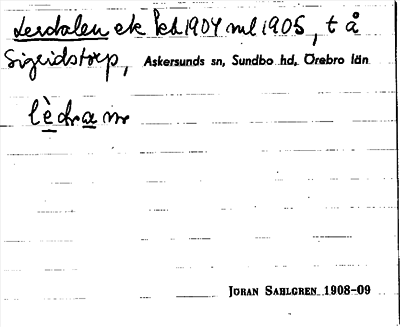 Lerdalen ek kd 1904 ml 1905, t å
Sigridstorp, Askersunds sn, Sundbo hd, Örebro län
lèdɑm
JÖRAN SAHLGREN 1908-09